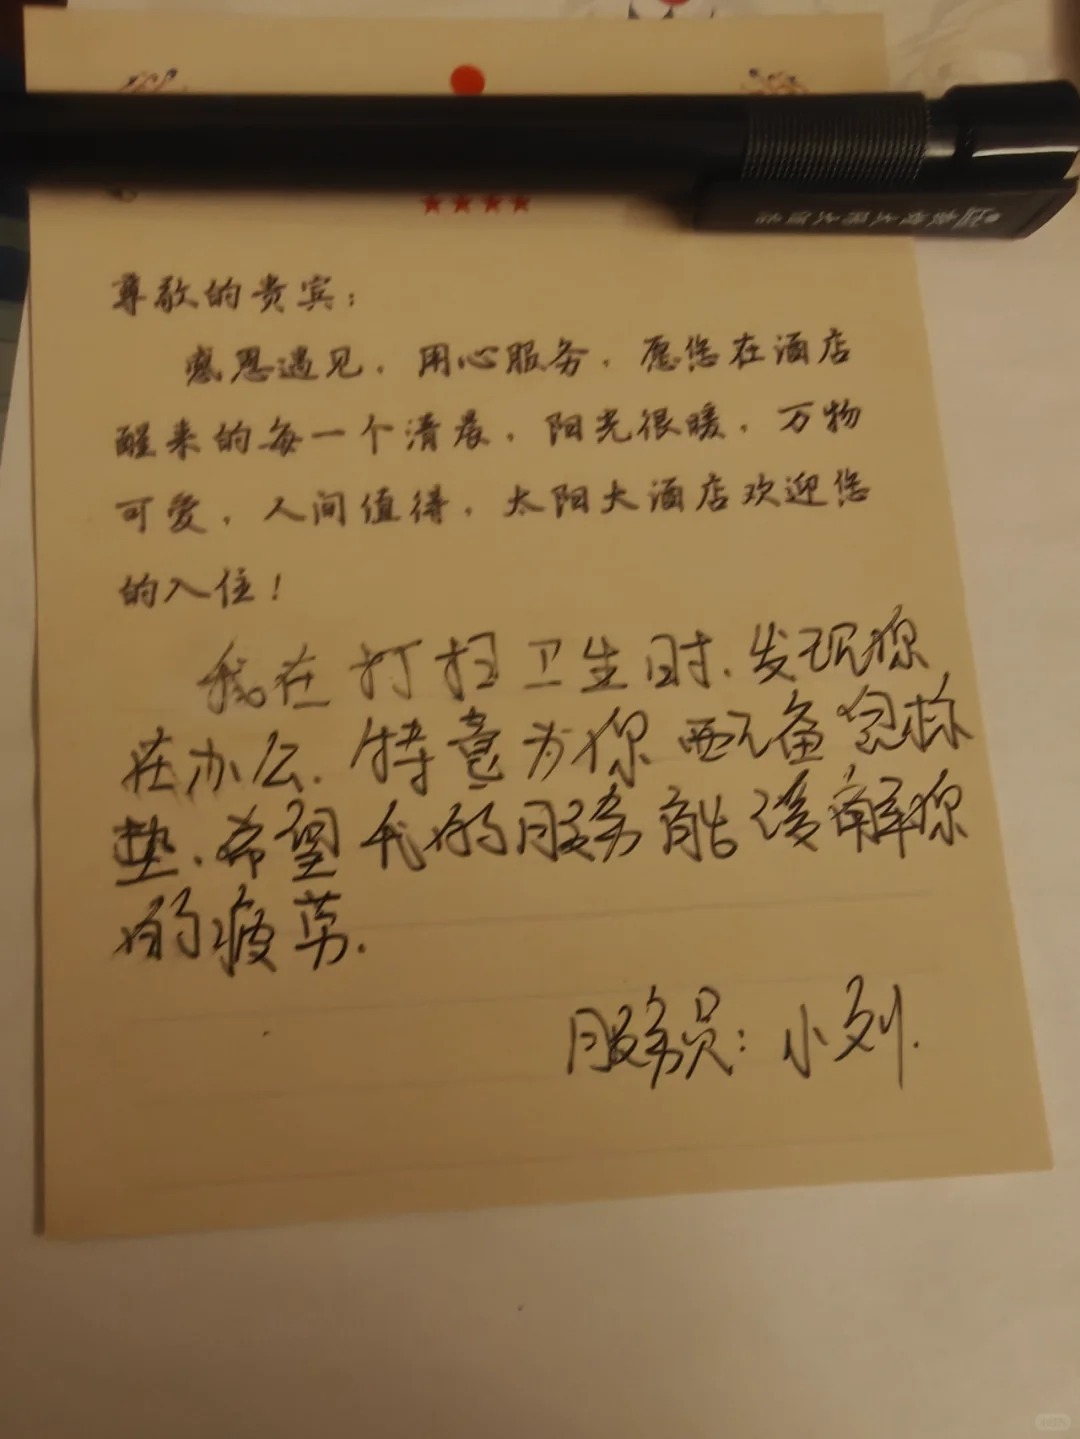 尊敬的贵宾：
感恩遇见，用心服务，愿您在酒店
醒来的每一个清晨，阳光很暖，万物
可爱，人间值得，太阳大酒店欢迎您
的入住！
我在打扫卫生时.发现你
在办公.特意为你配备
垫.希望我的服务能缓解你
的疲劳.
服务员：小刘.